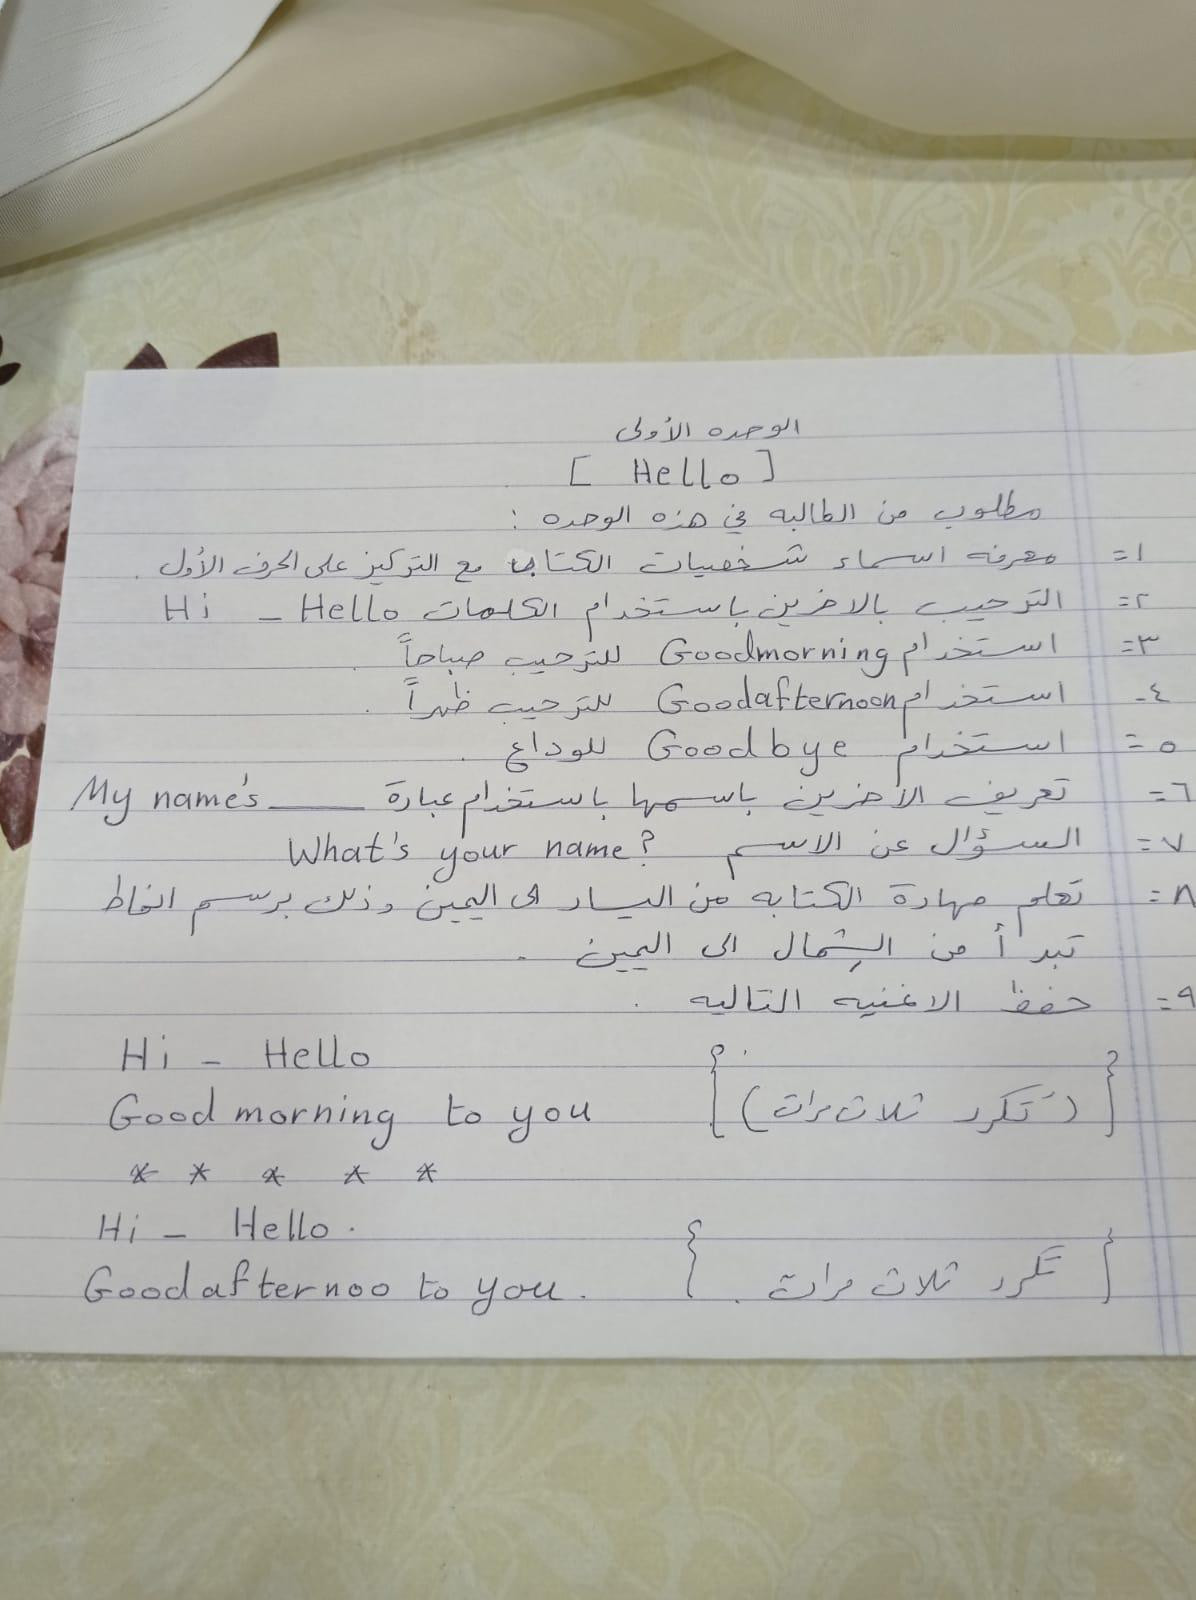 الوحده الأولى
[ Hello ]
مطلوب من الطالبه في هذه الوحده :
١= معرفه اسماء شخصيات الكتاب مع التركيز على الحرف الأول .
٢= الترحيب بالاخرين باستخدام الكلمات Hi – Hello
٣= استخدام Goodmorning للترحيب صباحاً .
٤- استخدام Goodafternoon للترحيب ظهراً .
٥= استخدام Goodbye للوداع .
٦= تعريف الأخرين باسمها باستخدام عبارة My name's ____
٧= السؤال عن الاسم What's your name?
٨= تعلم مهارة الكتابه من اليسار الى اليمين وذلك برسم انماط
تبدأ من الشمال الى اليمين .
٩= حفظ الاغنيه التاليه .
Hi – Hello
Good morning to you { (تتكرر ثلاث مرات) }
* * * * *
Hi – Hello .
Good afternoo to you . { تكرر ثلاث مرات . }